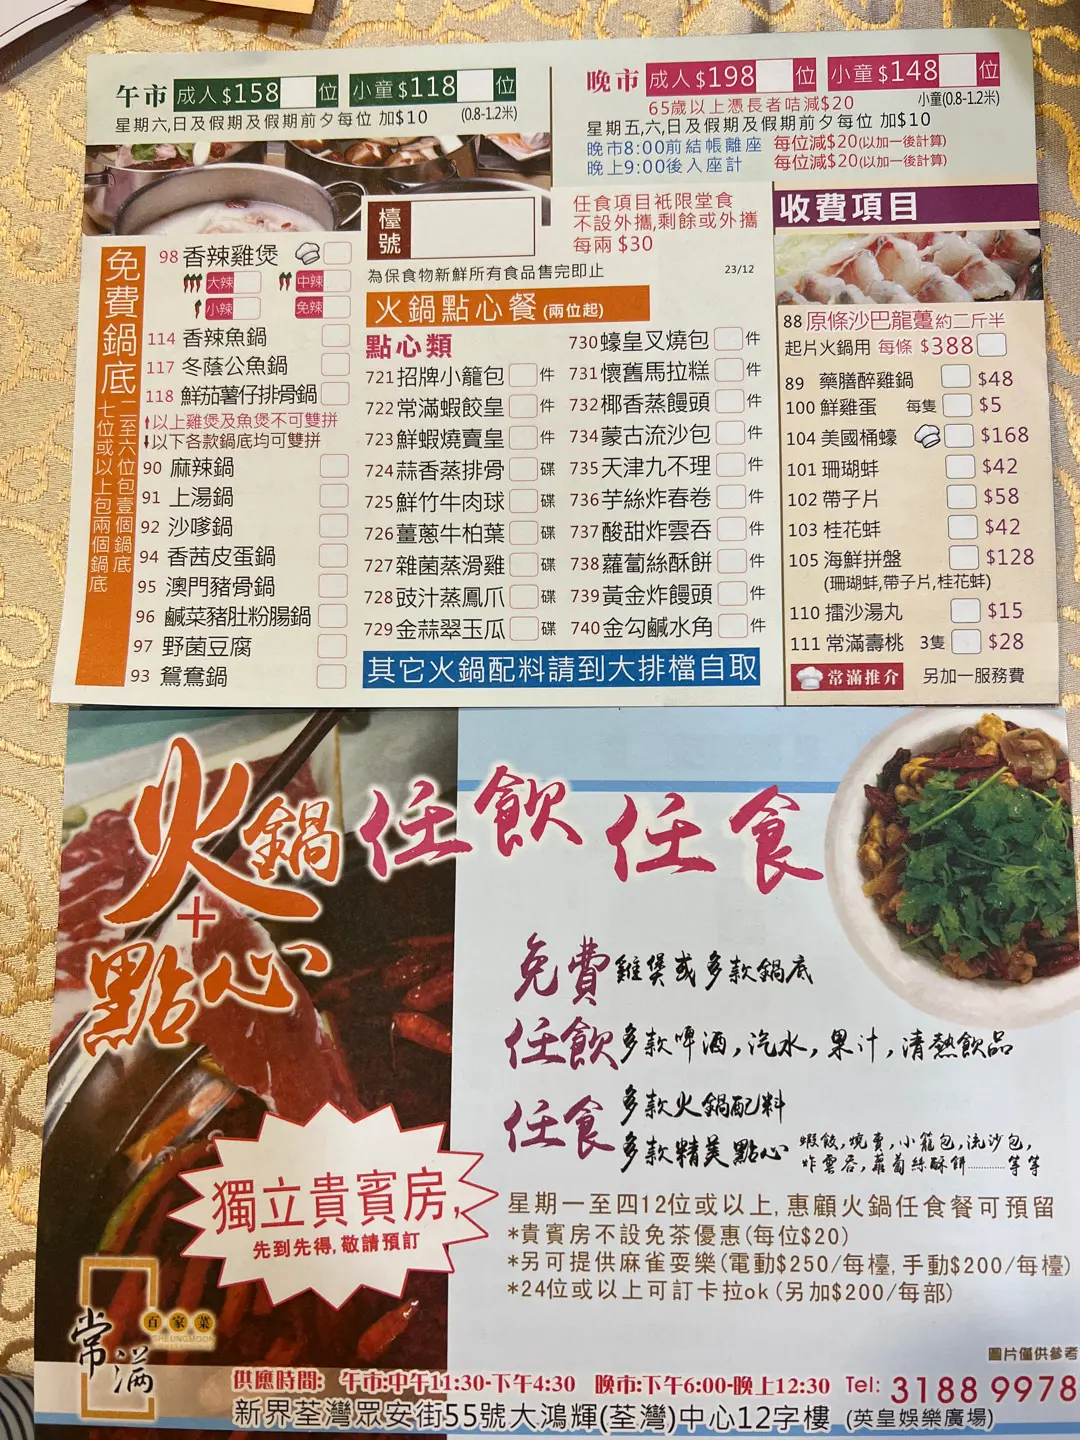 午市 成人$158 位 小童$118 位
星期六,日及假期及假期前夕每位 加$10 (0.8-1.2米)
晚市 成人$198 位 小童$148 位
65歲以上憑長者咭減$20 小童(0.8-1.2米)
星期五,六,日及假期及假期前夕每位 加$10
晚市8:00前結帳離座 每位減$20(以加一後計算)
晚上9:00後入座計 每位減$20(以加一後計算)
免費鍋底
二至六位包壹個鍋底
七位或以上包兩個鍋底
98 香辣雞煲
大辣 中辣
小辣 免辣
114 香辣魚鍋
117 冬蔭公魚鍋
118 鮮茄薯仔排骨鍋
以上雞煲及魚煲不可雙拼
以下各款鍋底均可雙拼
90 麻辣鍋
91 上湯鍋
92 沙嗲鍋
94 香茜皮蛋鍋
95 澳門豬骨鍋
96 鹹菜豬肚粉腸鍋
97 野菌豆腐
93 鴛鴦鍋
檯號
任食項目祇限堂食
不設外攜,剩餘或外攜
每兩 $30
為保食物新鮮所有食品售完即止 23/12
火鍋點心餐(兩位起)
點心類
721 招牌小籠包 件
722 常滿蝦餃皇 件
723 鮮蝦燒賣皇 件
724 蒜香蒸排骨 碟
725 鮮竹牛肉球 碟
726 薑蔥牛柏葉 碟
727 雜菌蒸滑雞 碟
728 豉汁蒸鳳爪 碟
729 金蒜翠玉瓜 碟
730 蠔皇叉燒包 件
731 懷舊馬拉糕 件
732 椰香蒸饅頭 件
734 蒙古流沙包 件
735 天津九不理 件
736 芋絲炸春卷 件
737 酸甜炸雲吞 件
738 蘿蔔絲酥餅 件
739 黃金炸饅頭 件
740 金勾鹹水角 件
其它火鍋配料請到大排檔自取
收費項目
88 原條沙巴龍躉約二斤半
起片火鍋用 每條 $388
89 藥膳醉雞鍋 $48
100 鮮雞蛋 每隻 $5
104 美國桶蠔 $168
101 珊瑚蚌 $42
102 帶子片 $58
103 桂花蚌 $42
105 海鮮拼盤 $128
(珊瑚蚌,帶子片,桂花蚌)
110 擂沙湯丸 $15
111 常滿壽桃 3隻 $28
常滿推介 另加一服務費
火鍋+點心 任飲任食
免費 雞煲或多款鍋底
任飲 多款啤酒,汽水,果汁,清熱飲品
任食 多款火鍋配料
多款精美點心 蝦餃,燒賣,小籠包,流沙包,
炸雲吞,蘿蔔絲酥餅............等等
獨立貴賓房,
先到先得,敬請預訂
星期一至四12位或以上,惠顧火鍋任食餐可預留
*貴賓房不設免茶優惠(每位$20)
*另可提供麻雀耍樂(電動$250/每檯,手動$200/每檯)
*24位或以上可訂卡拉ok(另加$200/每部)
常滿
百家菜
圖片僅供參考
供應時間: 午市:中午11:30-下午4:30 晚市:下午6:00-晚上12:30 Tel: 3188 9978
新界荃灣眾安街55號大鴻輝(荃灣)中心12字樓 (英皇娛樂廣場)